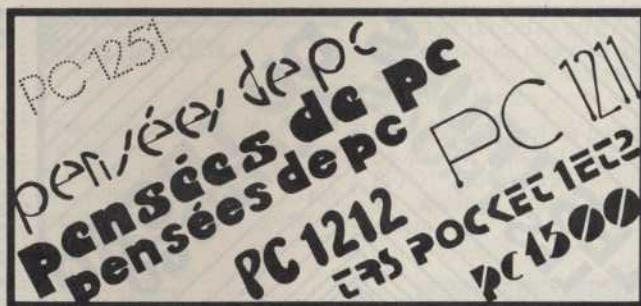 PC 1251
pensées de pc
pensées de pc
pensées de pc
PC 1211
PC 1212
TRS POCKET 1ET2
PC 1500